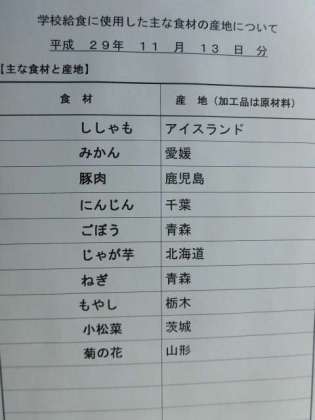 学校給食に使用した主な食材の産地について
平成 ２９年 １１ 月 １３ 日 分
【主な食材と産地】
食 材 産 地（加工品は原材料）
ししゃも アイスランド
みかん 愛媛
豚肉 鹿児島
にんじん 千葉
ごぼう 青森
じゃが芋 北海道
ねぎ 青森
もやし 栃木
小松菜 茨城
菊の花 山形